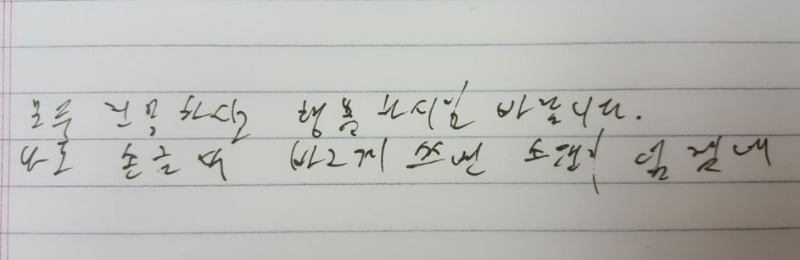 모두 건강하시고 행복하시길 바랍니다.
나도 손글씨 바르게 쓰면 소원이 없겠네